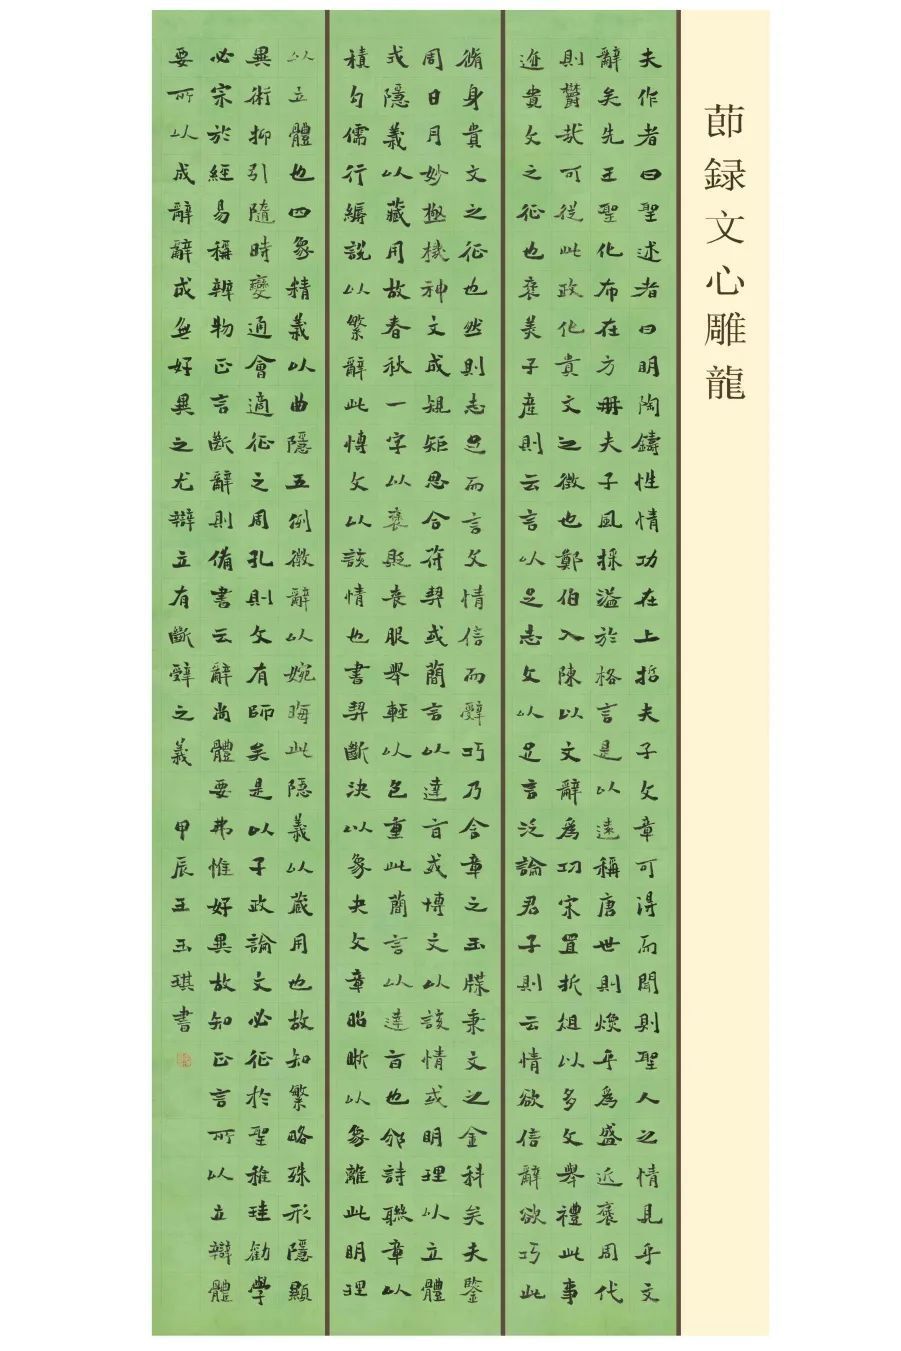 莭録文心雕龍
夫作者曰聖述者曰明陶鑄性情功在上哲夫子文章可得而聞則聖人之情見乎文
辭矣先王聖化布在方冊夫子風採溢於格言是以遠稱唐世則煥乎為盛近褒周代
則鬱哉可從此政化貴文之徵也鄭伯入陳以文辭為功宋置折俎以多文舉禮此事
迹貴文之征也褒美子產則云言以足志文以足言泛論君子則云情欲信辭欲巧此
脩身貴文之征也然則志足而言文情信而辭巧乃含章之玉牒秉文之金科矣夫鑒
周日月妙極機神文成規矩思合符契或簡言以達旨或博文以該情或明理以立體
或隱義以藏用故春秋一字以褒貶喪服舉輕以包重此簡言以達旨也邠詩聯章以
積句儒行縟說以繁辭此博文以該情也書契斷決以象夬文章昭晰以象離此明理
以立體也四象精義以曲隱五例微辭以婉晦此隱義以藏用也故知繁略殊形隱顯
異術抑引隨時變通會適征之周孔則文有師矣是以子政論文必征於聖稚珪勸學
必宗於經易稱辨物正言斷辭則備書云辭尚體要弗惟好異故知正言所以立辯體
要所以成辭辭成無好異之尤辯立有斷辭之義 甲辰王玉琪書